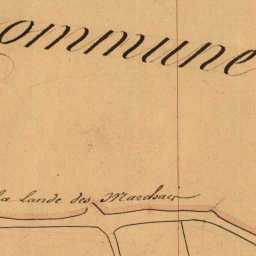 ommune
la Lande des Marchais